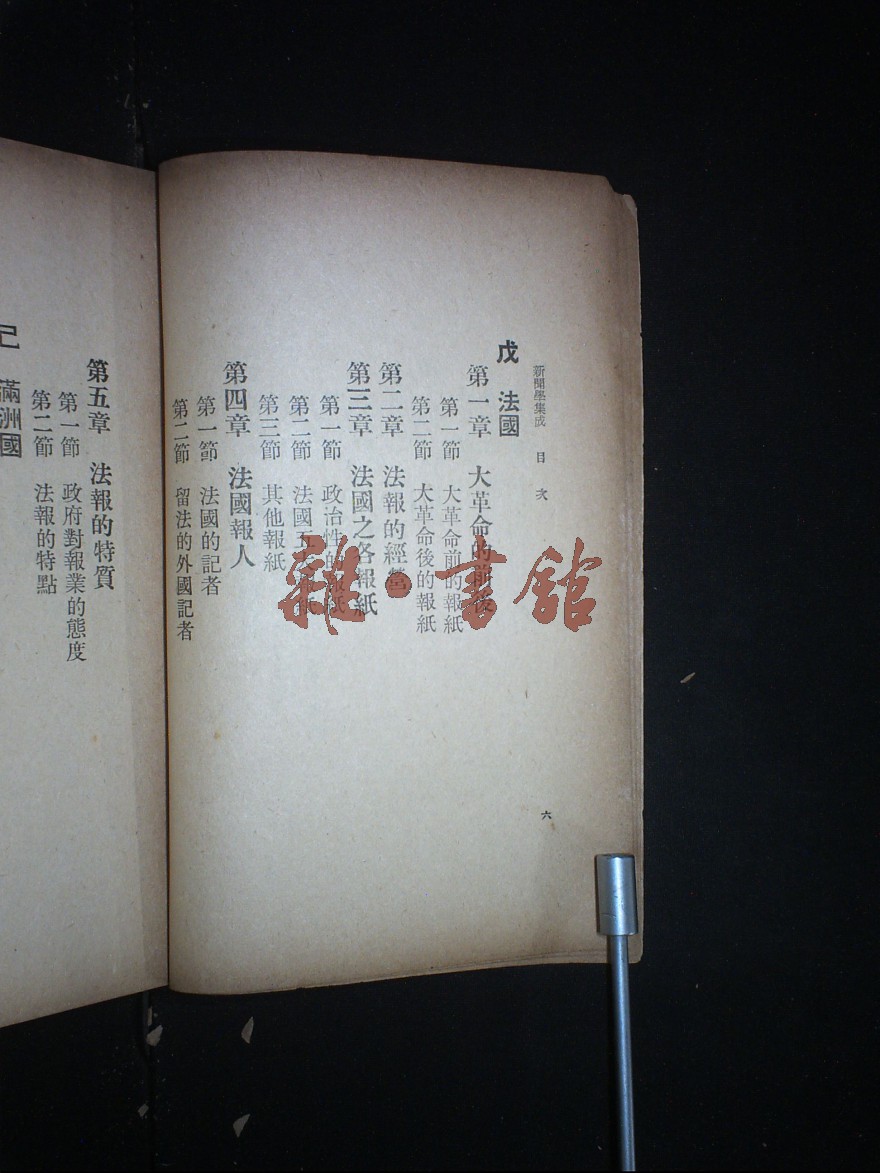 新聞學集成 目次
戊 法國
第一章 大革命的前後
第一節 大革命前的報紙
第二節 大革命後的報紙
第二章 法報的經營
第三章 法國之各報紙
第一節 政治性的報紙
第二節 法國五大報紙
第三節 其他報紙
第四章 法國報人
第一節 法國的記者
第二節 留法的外國記者
六
第五章 法報的特質
第一節 政府對報業的態度
第二節 法報的特點
己 滿洲國
雜·書館